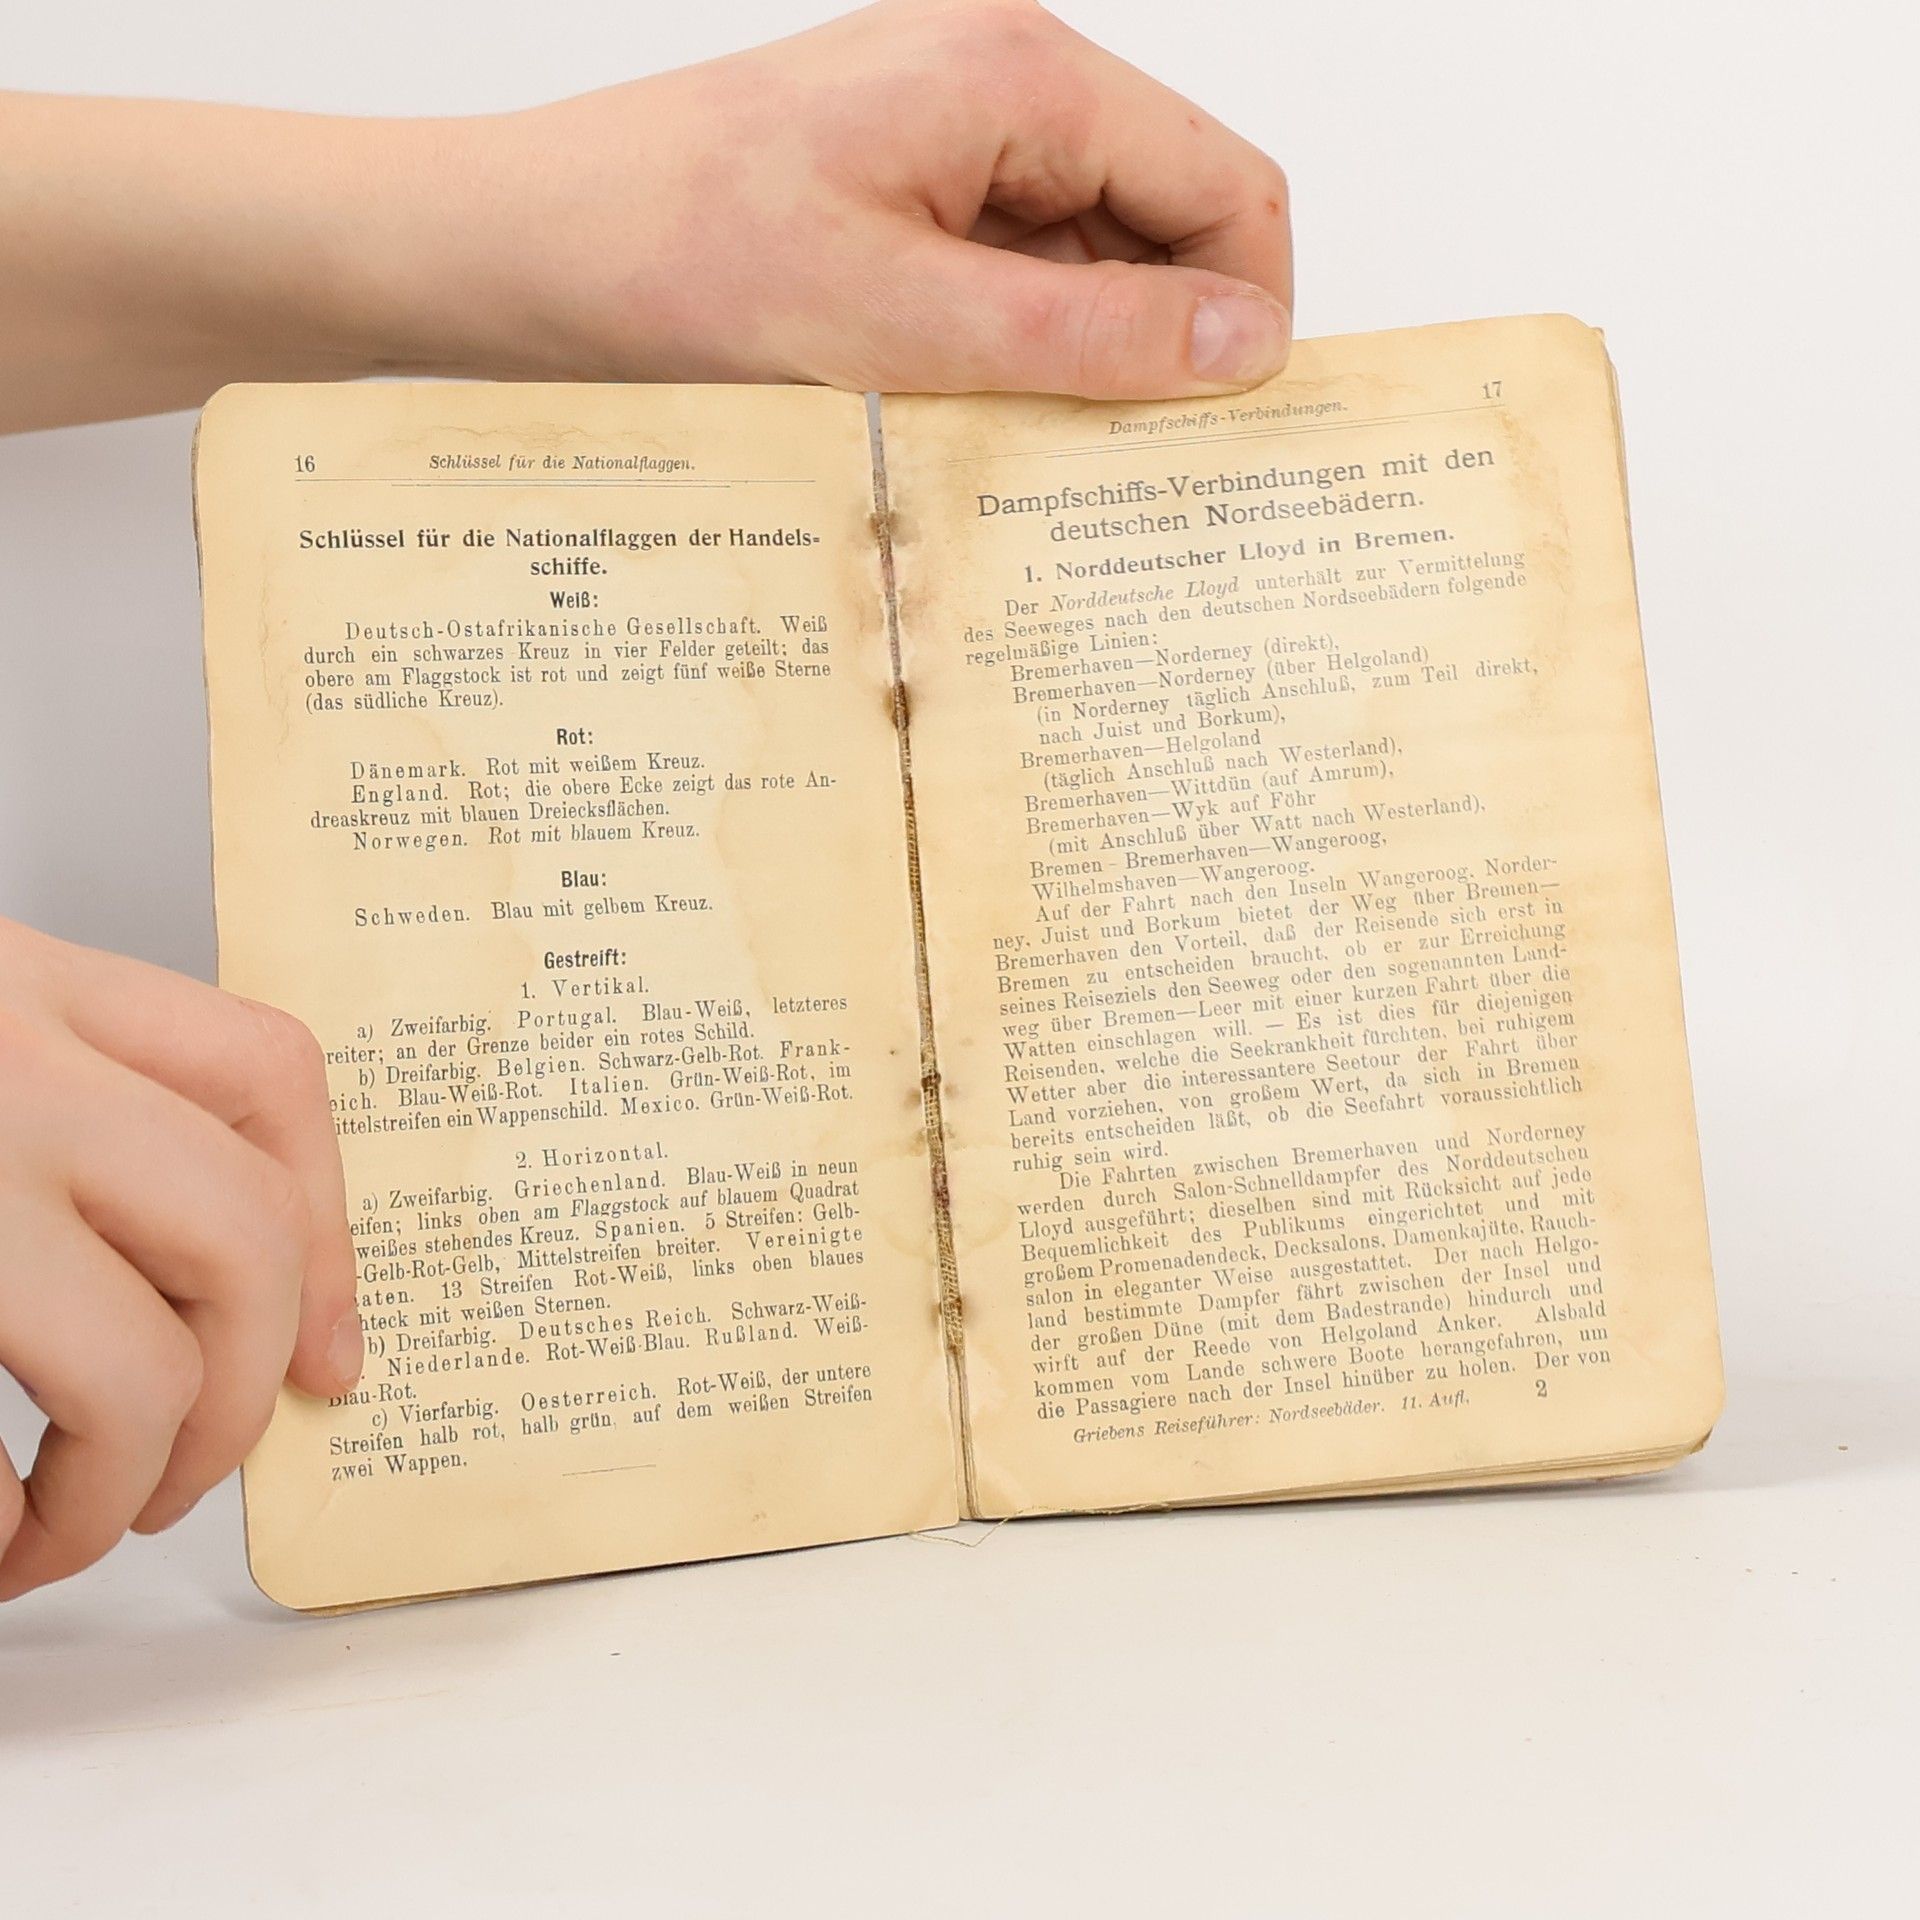 16 Schlüssel für die Nationalflaggen.
Schlüssel für die Nationalflaggen der Handels=
schiffe.
Weiß:
Deutsch-Ostafrikanische Gesellschaft. Weiß
durch ein schwarzes Kreuz in vier Felder geteilt; das
obere am Flaggstock ist rot und zeigt fünf weiße Sterne
(das südliche Kreuz).
Rot:
Dänemark. Rot mit weißem Kreuz.
England. Rot; die obere Ecke zeigt das rote An-
dreaskreuz mit blauen Dreiecksflächen.
Norwegen. Rot mit blauem Kreuz.
Blau:
Schweden. Blau mit gelbem Kreuz.
Gestreift:
1. Vertikal.
a) Zweifarbig. Portugal. Blau-Weiß, letzteres
reiter; an der Grenze beider ein rotes Schild.
b) Dreifarbig. Belgien. Schwarz-Gelb-Rot. Frank-
eich. Blau-Weiß-Rot. Italien. Grün-Weiß-Rot, im
ittelstreifen ein Wappenschild. Mexico. Grün-Weiß-Rot.
2. Horizontal.
a) Zweifarbig. Griechenland. Blau-Weiß in neun
eifen; links oben am Flaggstock auf blauem Quadrat
weißes stehendes Kreuz. Spanien. 5 Streifen: Gelb-
-Gelb-Rot-Gelb, Mittelstreifen breiter. Vereinigte
aten. 13 Streifen Rot-Weiß, links oben blaues
hteck mit weißen Sternen.
b) Dreifarbig. Deutsches Reich. Schwarz-Weiß-
. Niederlande. Rot-Weiß-Blau. Rußland. Weiß-
Blau-Rot.
c) Vierfarbig. Oesterreich. Rot-Weiß, der untere
Streifen halb rot, halb grün, auf dem weißen Streifen
zwei Wappen.
Dampfschiffs-Verbindungen. 17
Dampfschiffs-Verbindungen mit den
deutschen Nordseebädern.
1. Norddeutscher Lloyd in Bremen.
Der Norddeutsche Lloyd unterhält zur Vermittelung
des Seeweges nach den deutschen Nordseebädern folgende
regelmäßige Linien:
Bremerhaven—Norderney (direkt),
Bremerhaven—Norderney (über Helgoland)
(in Norderney täglich Anschluß, zum Teil direkt,
nach Juist und Borkum),
Bremerhaven—Helgoland
(täglich Anschluß nach Westerland),
Bremerhaven—Wittdün (auf Amrum),
Bremerhaven—Wyk auf Föhr
(mit Anschluß über Watt nach Westerland),
Bremen - Bremerhaven—Wangeroog,
Wilhelmshaven—Wangeroog.
Auf der Fahrt nach den Inseln Wangeroog, Norder-
ney, Juist und Borkum bietet der Weg über Bremen—
Bremerhaven den Vorteil, daß der Reisende sich erst in
Bremen zu entscheiden braucht, ob er zur Erreichung
seines Reiseziels den Seeweg oder den sogenannten Land-
weg über Bremen—Leer mit einer kurzen Fahrt über die
Watten einschlagen will. — Es ist dies für diejenigen
Reisenden, welche die Seekrankheit fürchten, bei ruhigem
Wetter aber die interessantere Seetour der Fahrt über
Land vorziehen, von großem Wert, da sich in Bremen
bereits entscheiden läßt, ob die Seefahrt voraussichtlich
ruhig sein wird.
Die Fahrten zwischen Bremerhaven und Norderney
werden durch Salon-Schnelldampfer des Norddeutschen
Lloyd ausgeführt; dieselben sind mit Rücksicht auf jede
Bequemlichkeit des Publikums eingerichtet und mit
großem Promenadendeck, Decksalons, Damenkajüte, Rauch-
salon in eleganter Weise ausgestattet. Der nach Helgo-
land bestimmte Dampfer fährt zwischen der Insel und
der großen Düne (mit dem Badestrande) hindurch und
wirft auf der Reede von Helgoland Anker. Alsbald
kommen vom Lande schwere Boote herangefahren, um
die Passagiere nach der Insel hinüber zu holen. Der von
Griebens Reiseführer: Nordseebäder. 11. Aufl. 2